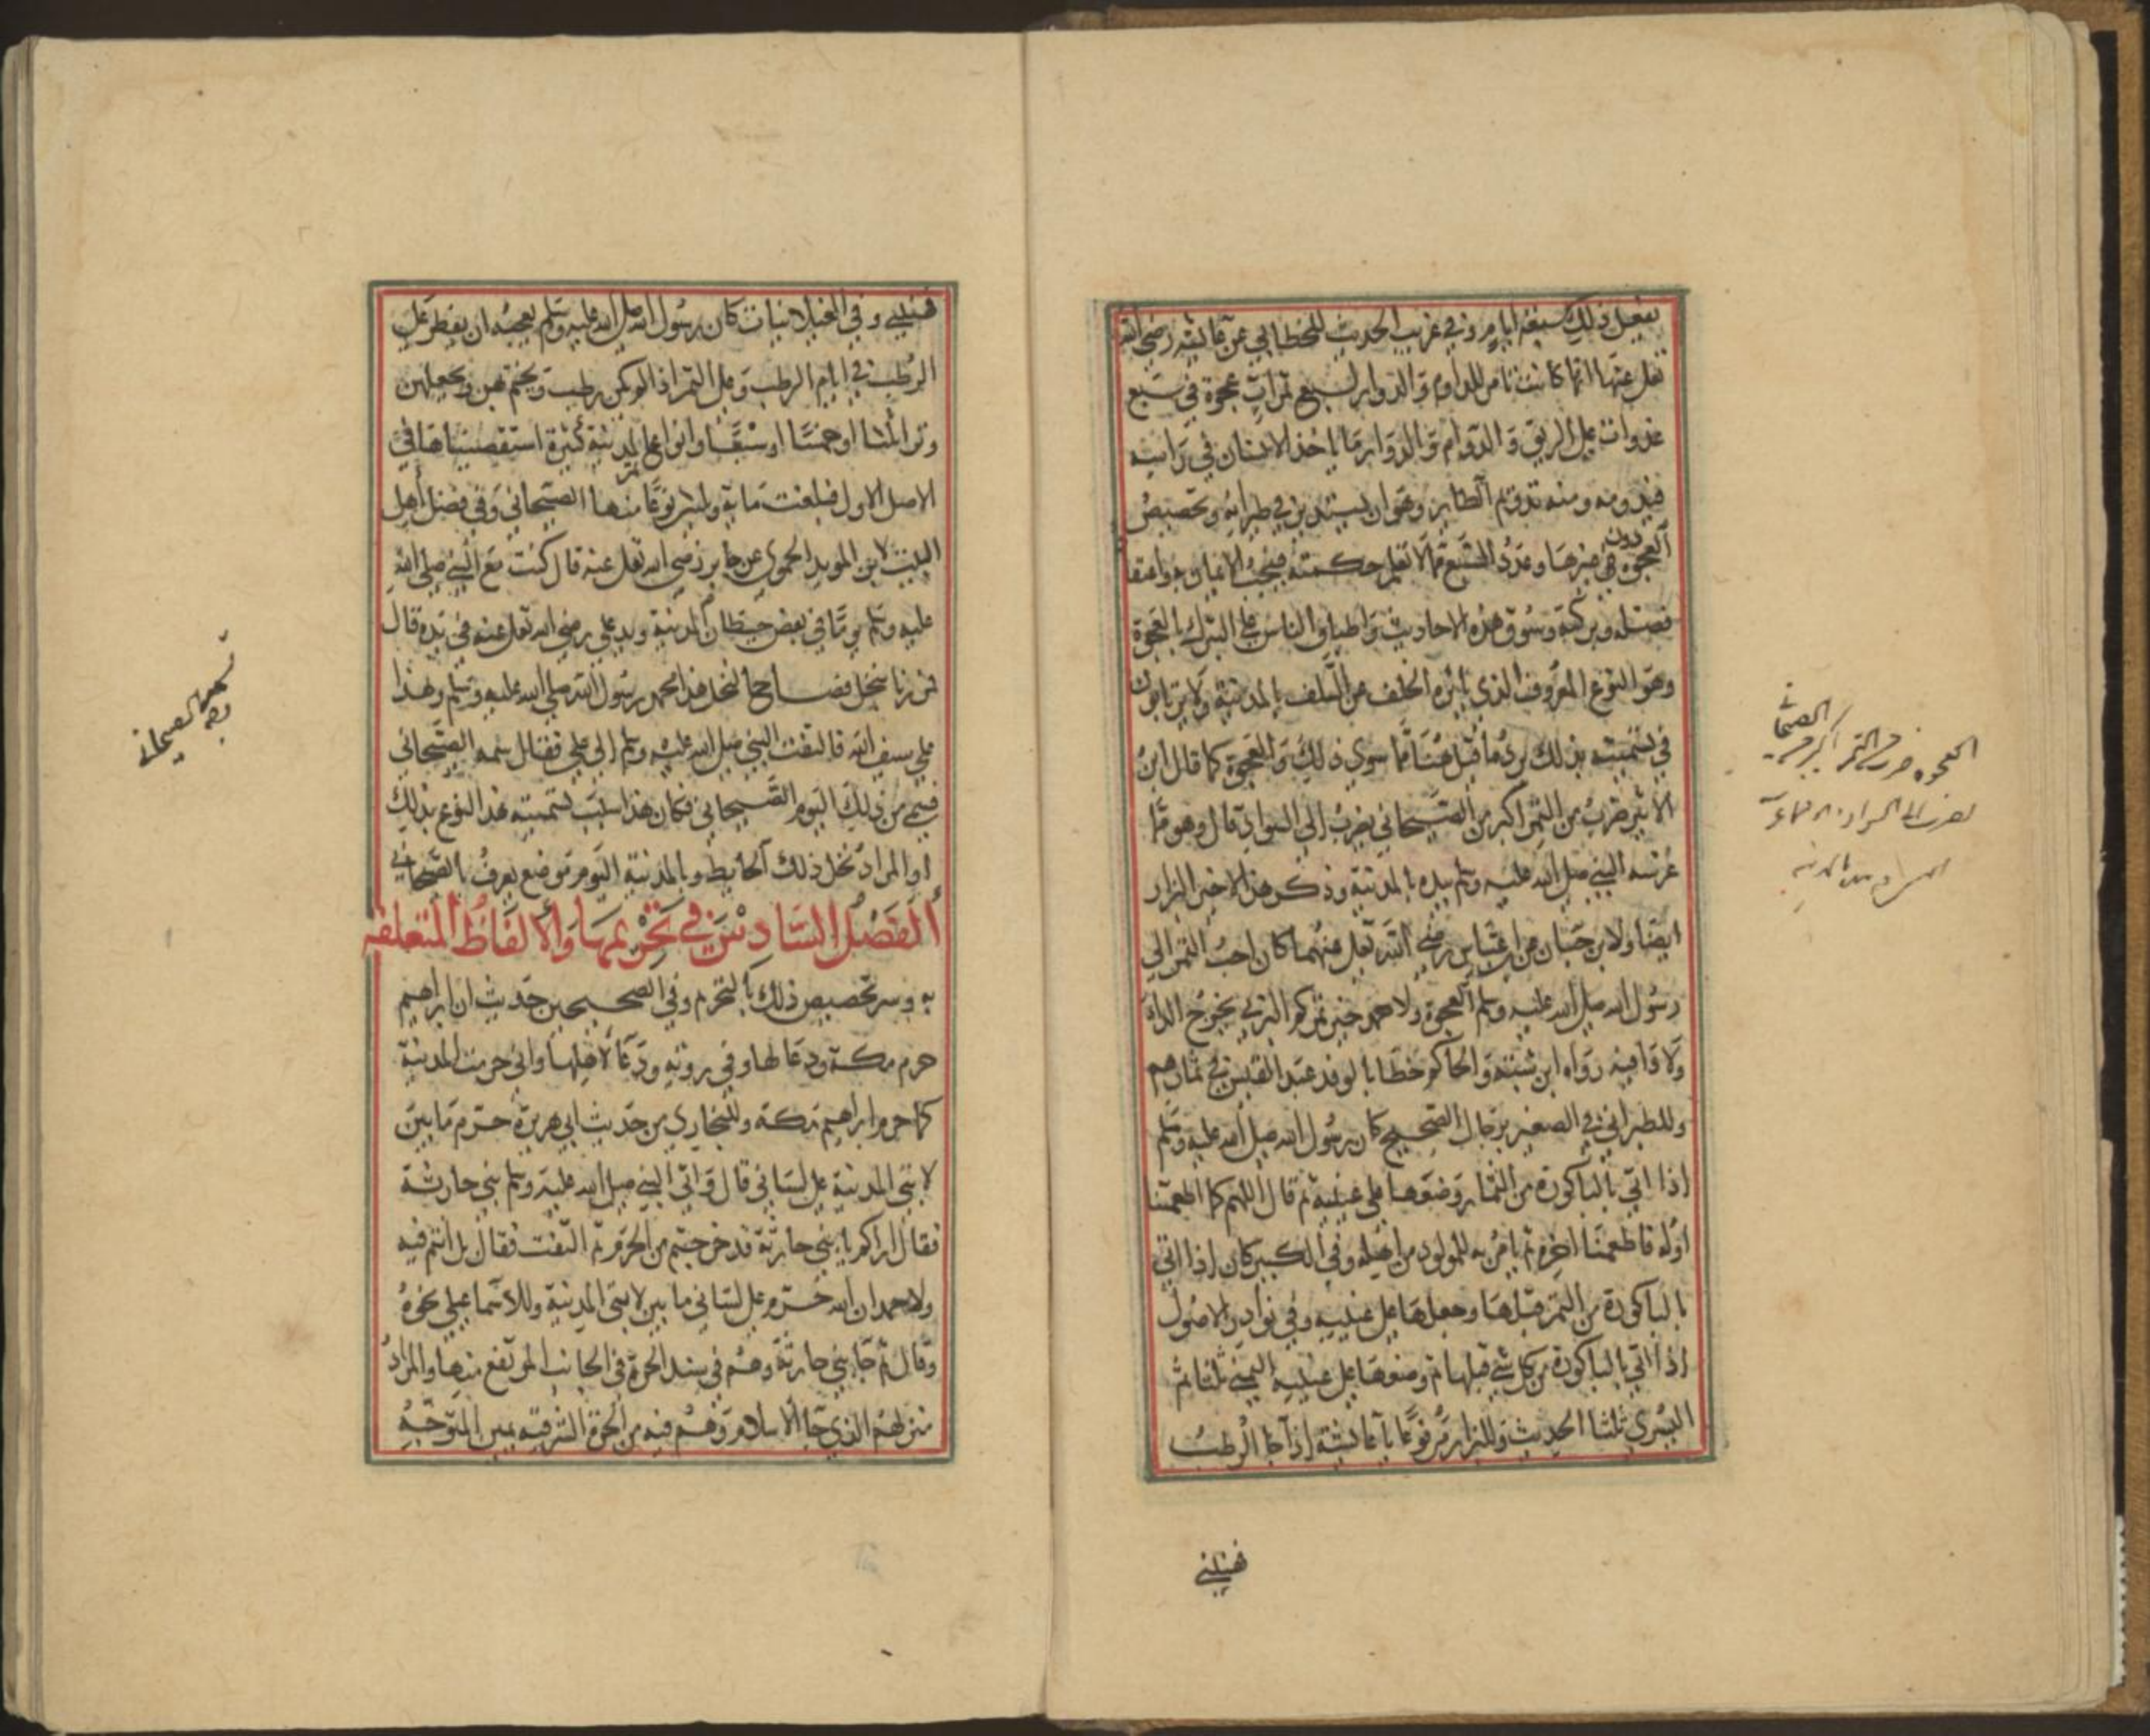 يفعل ذلك سبعة ايام وفي غريب الحديث للخطابي عن عائشة رضي الله
تعلى عنها انها كانت تامر للدوام والدوار بسبع تمرات عجوة في سبع
غدوات على الريق والدوام والدوار ما ياخذ الانسان في راسه
فيدومه ومنه تدويم الطاير وهو ان يستدير في طيرانه وتخصيص
العجوة دون غيرها وعدد السبع مما لا نعلم حكمته فيجب الايمان به واعتقاد
فضله وبركته وسوق هذه الاحاديث واطباق الناس على التبرك بالعجوة
وهو النوع المعروف الذي ياثره الخلف عن السلف بالمدينة ولا يرتابون
في تسميته بذلك يرد ما قيل هنا مما سوى ذلك والعجوة كما قال ابن
الاثير ضرب من التمر اكبر من الصيحاني يضرب الى السواد قال وهو مما
غرسه النبي صلى الله عليه وسلم بيده بالمدينة وذكر هذا الاخير البزار
ايضا ولابن حبان عن ابن عباس رضي الله تعلى عنهما كان احب التمر الى
رسول الله صلى الله عليه وسلم العجوة ولاحمد خير تمركم البرني يخرج الداء
ولا داء فيه رواه ابن شبة والحاكم خطابا لوفد عبد القيس في ثمارهم
وللطبراني في الصغير برجال الصحيح كان رسول الله صلى الله عليه وسلم
اذا اتي بالباكورة من الثمار وضعها على عينيه ثم قال اللهم كما اطعمتنا
اوله فاطعمنا اخره ثم يامر به للمولود من اهله وفي الكبير كان اذا اتي
بالباكورة من التمر قبلها وجعلها على عينيه وفي نوادر الاصول
اذا اتي بالباكورة من كل شي قبلها ثم وضعها على عينيه اليمنى ثلثا ثم
اليسرى ثلثا الحديث وللبزار مرفوعا يا عائشة اذا جا الرطب
فهنيني
العجوه ضرب من التمر اكبر من الصيحاني
يضرب الى السواد
فهنيني وفي الغيلانيات كان رسول الله صلى الله عليه وسلم يعجبه ان يفطر على
الرطب في ايام الرطب وعلى التمر اذا لم يكن رطب ويختم بهن ويجعلهن
وترا ثلثا او خمسا او سبعا وانواع تمر المدينة كثيرة استقصيناها في
الاصل الاول فبلغت ماية و نوعا منها الصيحاني وفي فضل اهل
البيت لابن المويد الحموي عن جابر رضي الله تعلى عنه قال كنت مع النبي صلى الله
عليه وسلم يوما في بعض حيطان المدينة ويد علي رضي الله تعلى عنه في يده قال
فمررنا بنخل فصاح النخل هذا محمد رسول الله صلى الله عليه وسلم وهذا
علي سيف الله فالتفت النبي صلى الله عليه وسلم الى علي فقال سمه الصيحاني
فسمي من ذلك اليوم الصيحاني فكان هذا سبب تسميته هذا النوع بذلك
او المراد نخل ذلك الحايط وبالمدينة اليوم موضع يعرف بالصيحاني
الفصل السادس في تحريمها والالفاظ المتعلقة
به وسر تخصيص ذلك بالتحريم وفي الصحيحين حديث ان ابراهيم
حرم مكة ودعا لها وفي رواية ودعا لاهلها واني حرمت المدينة
كما حرم ابراهيم مكة وللبخاري من حديث ابي هريرة حرم ما بين
لابتي المدينة على لساني قال واتى النبي صلى الله عليه وسلم بني حارثة
فقال اراكم يا بني حارثة قد خرجتم من الحرم ثم التفت فقال بل انتم فيه
ولاحمد ان الله حرم على لساني ما بين لابتي المدينة وللاسماعيلي نحوه
وقال ثم جا بني حارثة وهم في سند الحرة في الجانب المرتفع منها والمراد
منزلهم الذي جا الاسلام وهم فيه من الحرة الشرقية بمين المتوجه
الصيحاني